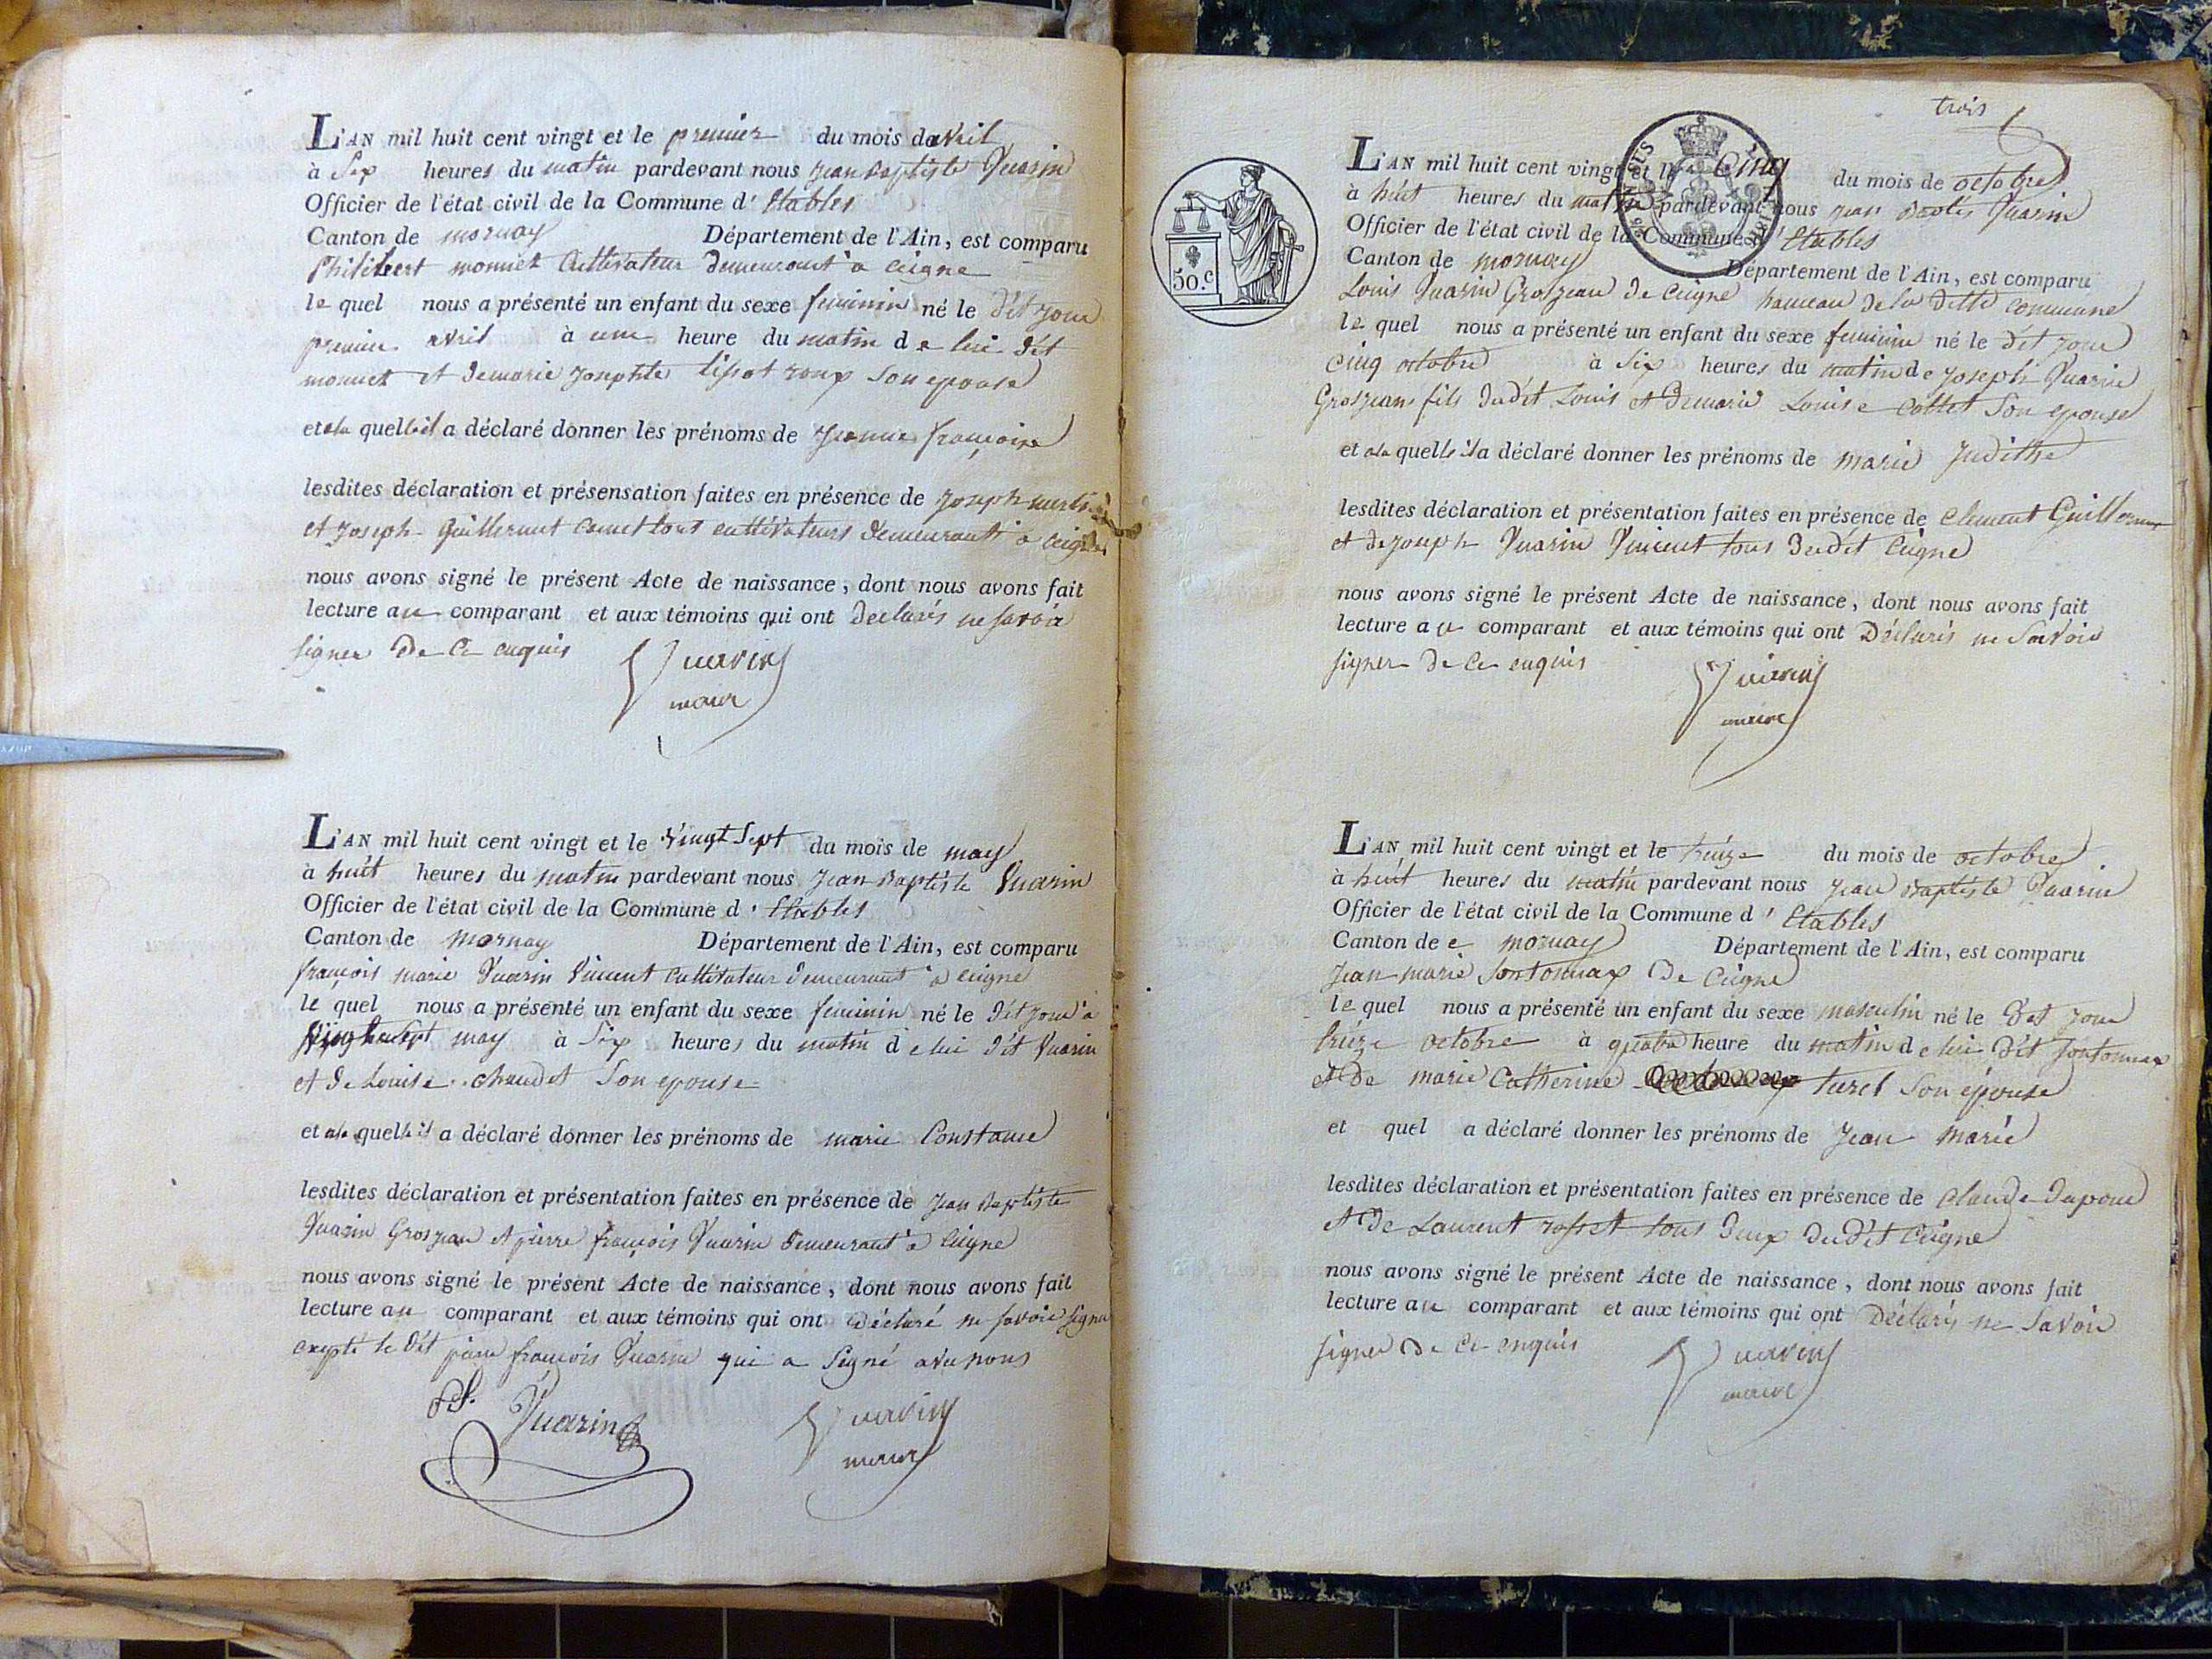 L'AN mil huit cent vingt et le premier du mois davril
à six heures du matin pardevant nous jean baptiste Juarin
Officier de l'état civil de la Commune d' Etables
Canton de mornay Département de l'Ain, est comparu
Philibert monnet Cultivateur demeurant a ceigne
le quel nous a présenté un enfant du sexe feminin né le dit jour
premier avril à une heure du matin d e lui dit
monnet et demarie josephte tissot roux son epouse
et ala quelle il a déclaré donner les prénoms de jeanne françoise
lesdites déclaration et présensation faites en présence de joseph
et joseph Guillermet tous cultivateurs demeurant a ceigne
nous avons signé le présent Acte de naissance, dont nous avons fait
lecture au comparant et aux témoins qui ont declarés ne savoir
signer de ce enquis Juarin
maire
L'AN mil huit cent vingt et le vingt sept du mois de may
à huit heures du matin pardevant nous jean baptiste Juarin
Officier de l'état civil de la Commune d' Etables
Canton de mornay Département de l'Ain, est comparu
françois marie Juarin Vincent cultivateur demeurant a ceigne
le quel nous a présenté un enfant du sexe feminin né le dit jour
vingt sept may à six heures du matin d e lui dit Juarin
et de Louise chaudet son epouse
et ala quelle il a déclaré donner les prénoms de marie Constance
lesdites déclaration et présentation faites en présence de jean baptiste
Juarin Grosjean et pierre françois Juarin demeurant a ceigne
nous avons signé le présent Acte de naissance, dont nous avons fait
lecture au comparant et aux témoins qui ont déclaré ne savoir signer
excepté le dit pierre françois Juarin qui a signé avec nous
Juarin Juarin
maire
trois
50.c
L'AN mil huit cent vingt et le Cinq du mois de octobre
à huit heures du matin pardevant nous jean Juarin
Officier de l'état civil de la Commune d' Etables
Canton de mornay Département de l'Ain, est comparu
Louis Juarin Grosjean de ceigne hameau de la ditte commune
le quel nous a présenté un enfant du sexe feminin né le dit jour
cinq octobre à six heures du matin d e joseph Juarin
Grosjean fils dudit Louis et demarie Louise Collet son epouse
et ala quelle il a déclaré donner les prénoms de marie judithe
lesdites déclaration et présentation faites en présence de clement Guillermet
et de joseph Juarin Vincent tous dudit Ceigne
nous avons signé le présent Acte de naissance, dont nous avons fait
lecture au comparant et aux témoins qui ont déclarés ne savoir
signer de ce enquis Juarin
maire
L'AN mil huit cent vingt et le treize du mois de octobre
à huit heures du matin pardevant nous jean baptiste Juarin
Officier de l'état civil de la Commune d' Etables
Canton de e mornay Département de l'Ain, est comparu
jean marie Jontonnax de Ceigne
le quel nous a présenté un enfant du sexe masculin né le dit jour
treize octobre à quatre heure du matin d e lui dit Jontonnax
et de marie Catherine turel son épouse
et quel a déclaré donner les prénoms de jean marie
lesdites déclaration et présentation faites en présence de claude
et de Laurent rosset tous deux dudit Ceigne
nous avons signé le présent Acte de naissance, dont nous avons fait
lecture au comparant et aux témoins qui ont Déclarés ne savoir
signer de ce enquis Juarin
maire